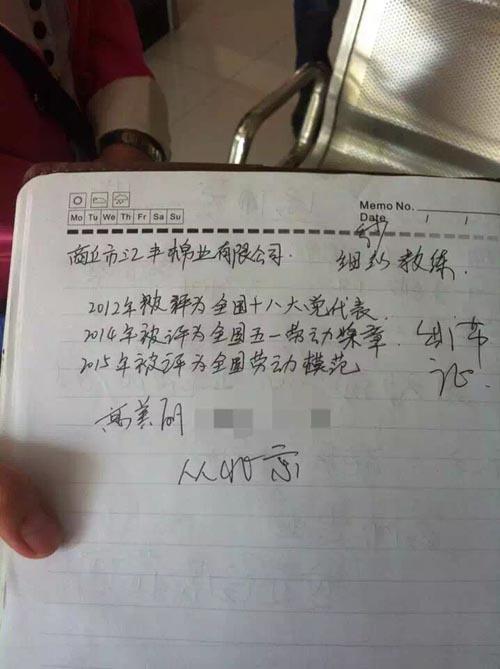 Mo Tu We Th Fr Sa Su
Memo No.
Date / /
商丘市江丰棉业有限公司.
细纱教练.
2012年被评为全国十八大党代表.
2014年被评为全国五一劳动奖章.
2015年被评为全国劳动模范
出门
证
高美丽